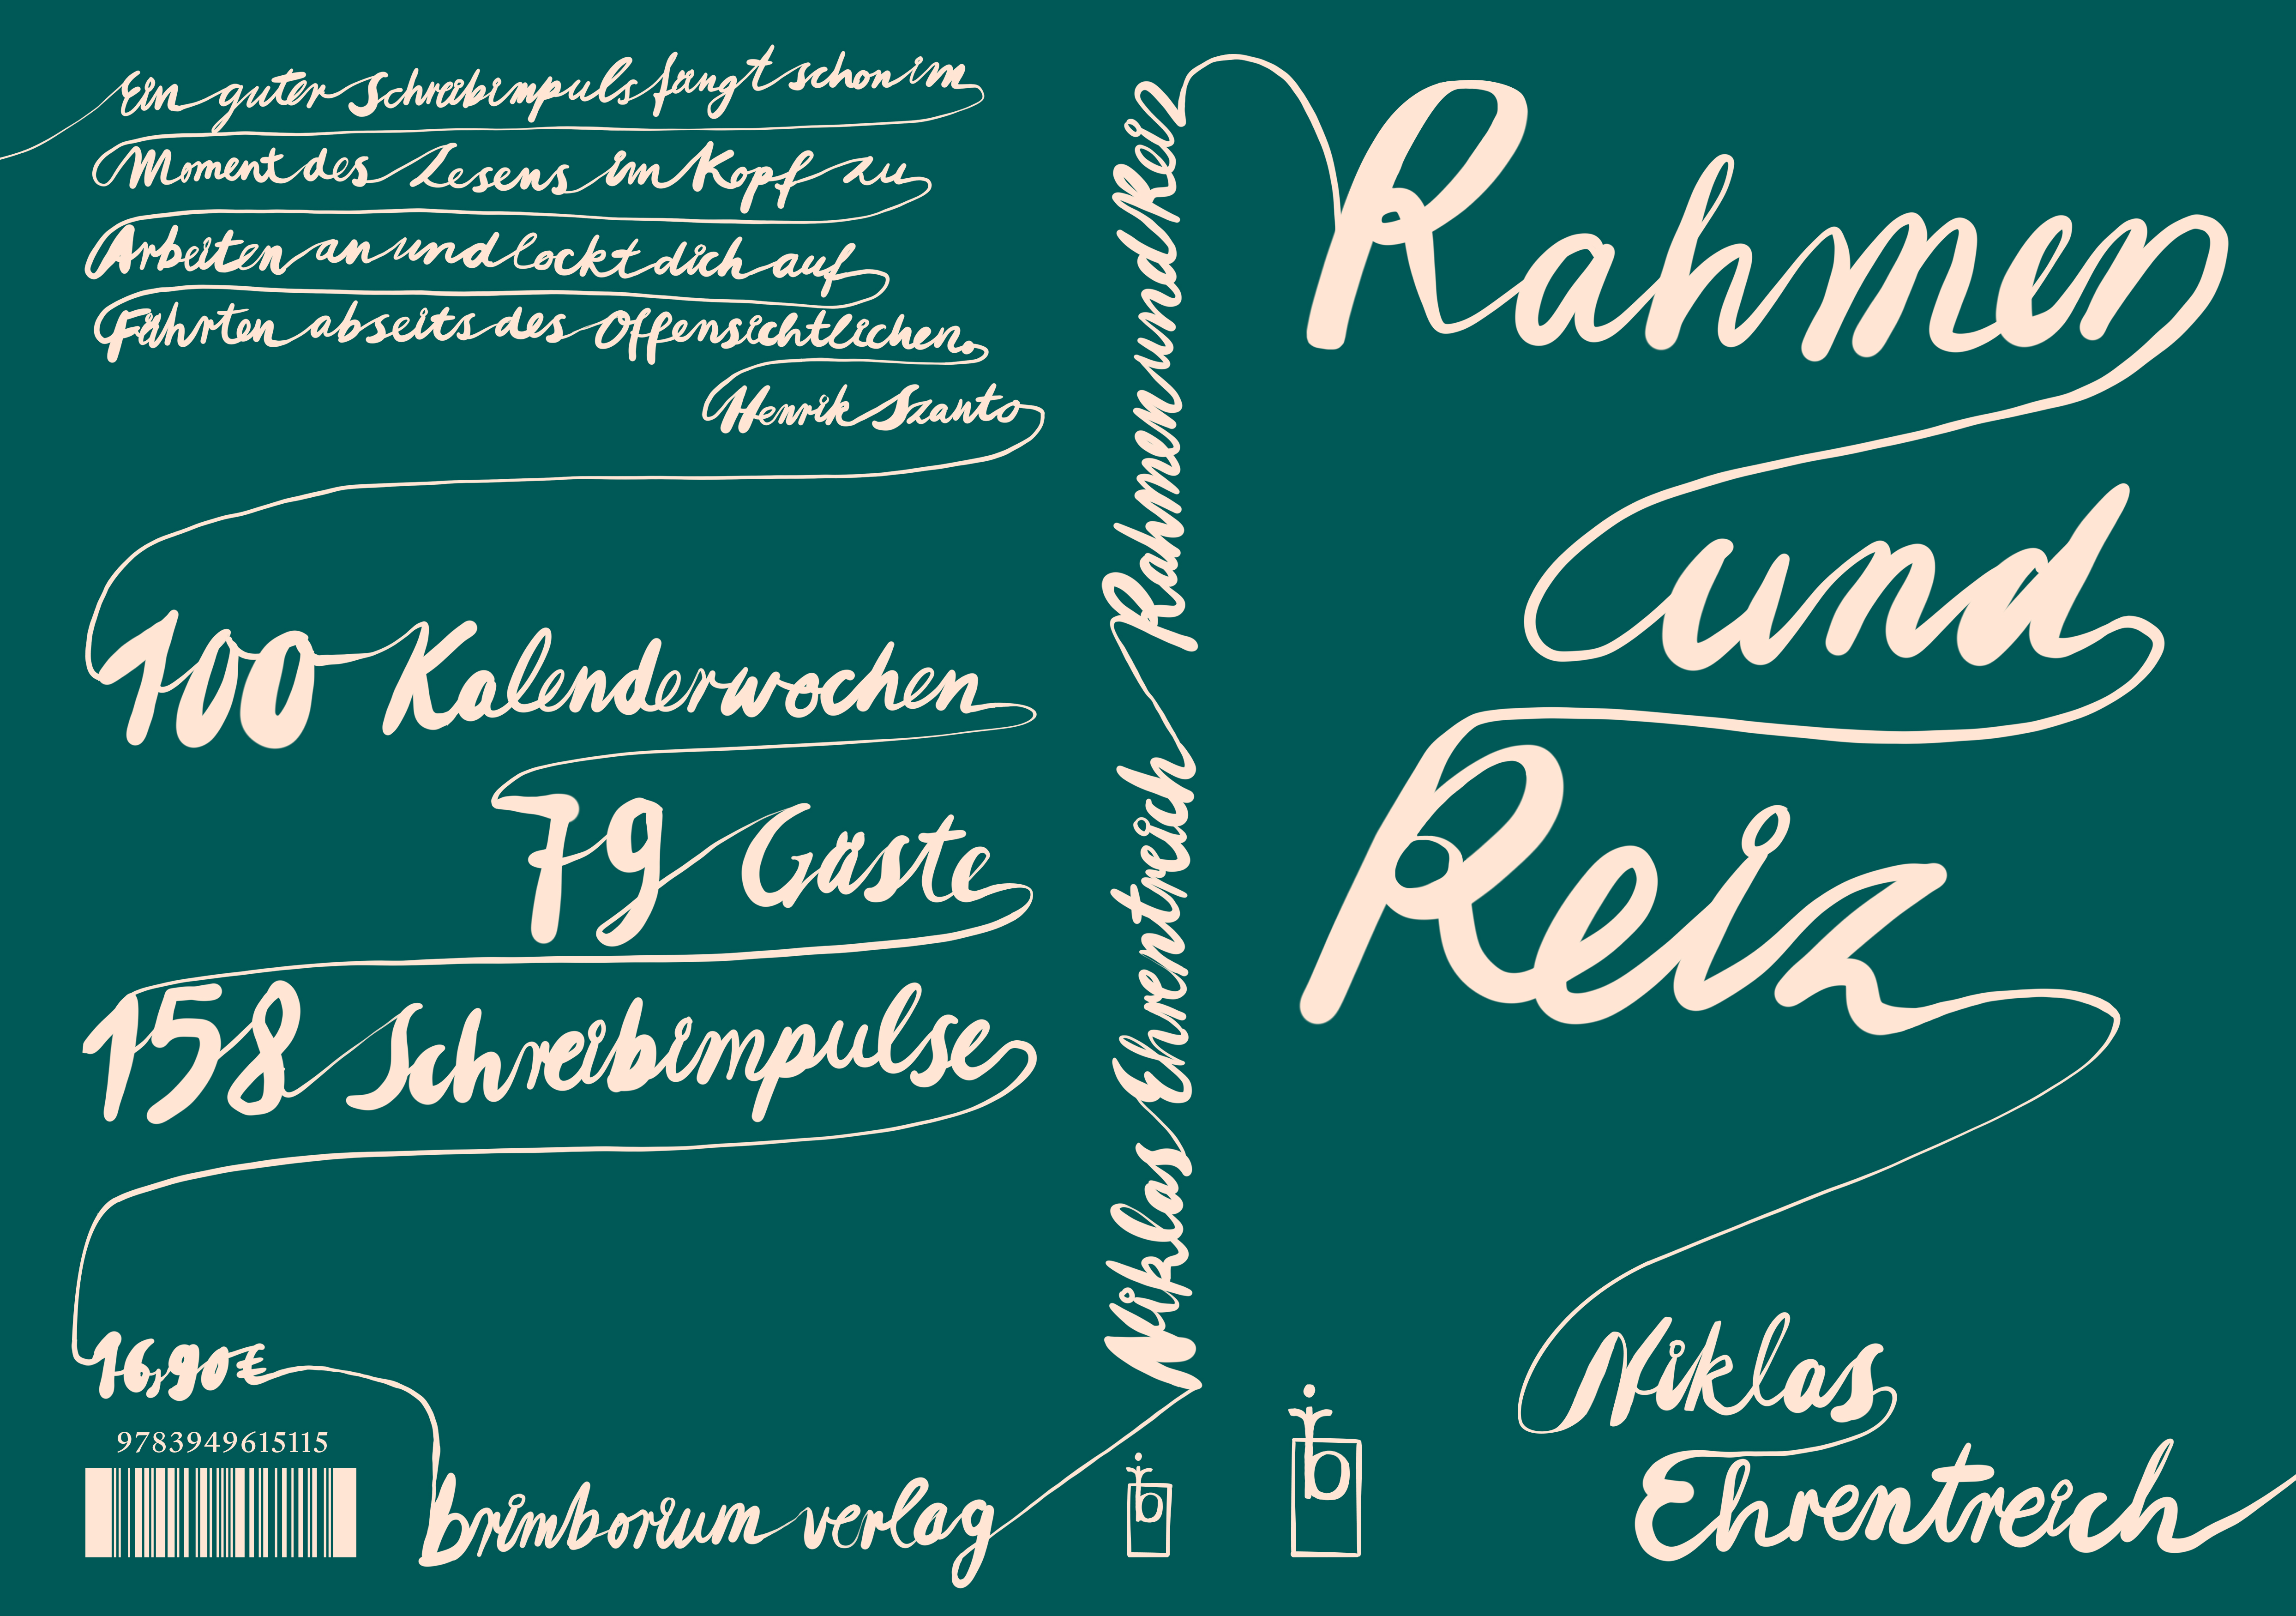 Ein guter Schreibimpuls fängt schon im
Moment des Lesens im Kopf zu
Arbeiten an und lockt dich auf
Fährten abseits des Offensichtlichen.
Henrik Szanto
100 Kalenderwochen
79 Gäste
158 Schreibimpulse
16,90€
9783949615115
brimborium verlag
Niklas Ehrentreich Rahmen und Reiz
b
Rahmen
und
Reiz
Niklas
Ehrentreich
b